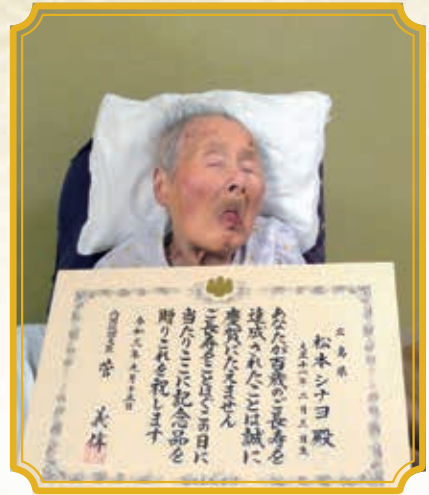 広島県
松本シナヨ殿
大正十一年二月三日生
あなたが百歳のご長寿を
達成されたことは誠に
慶賀にたえません
ご長寿をことほぐこの日に
当たりここに記念品を
贈りこれを祝します
令和三年九月十五日
内閣総理大臣
菅義偉